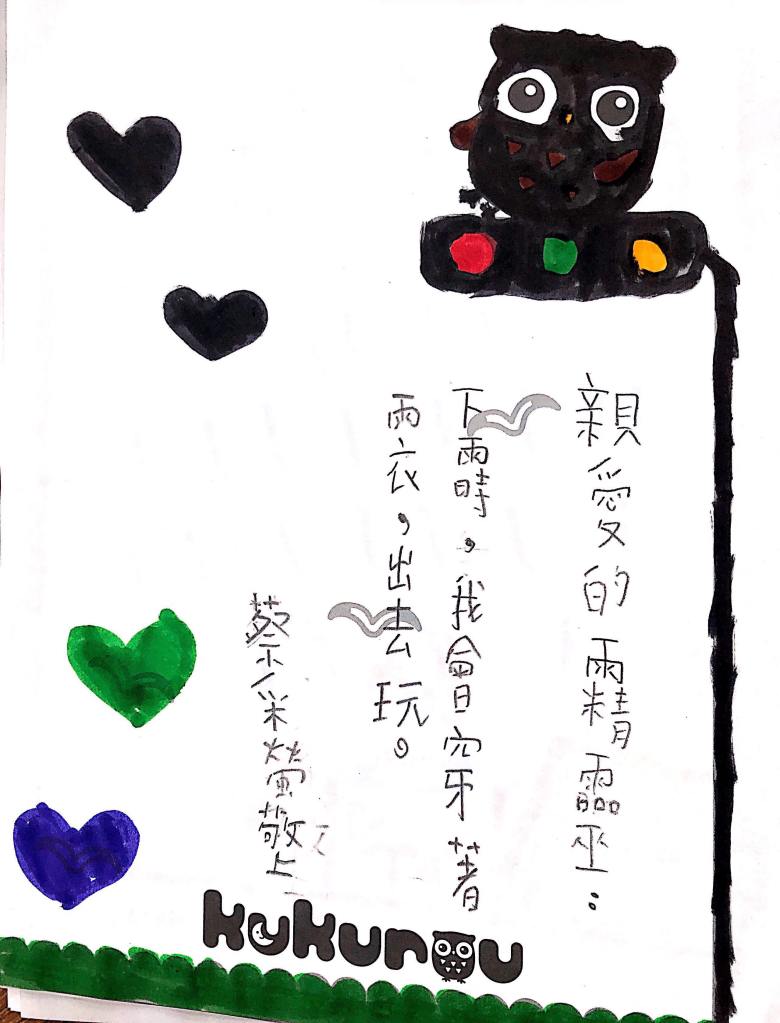 親愛的雨精靈:
下雨時,我會穿著
雨衣,出去玩。
蔡采螢敬上
kukuruou